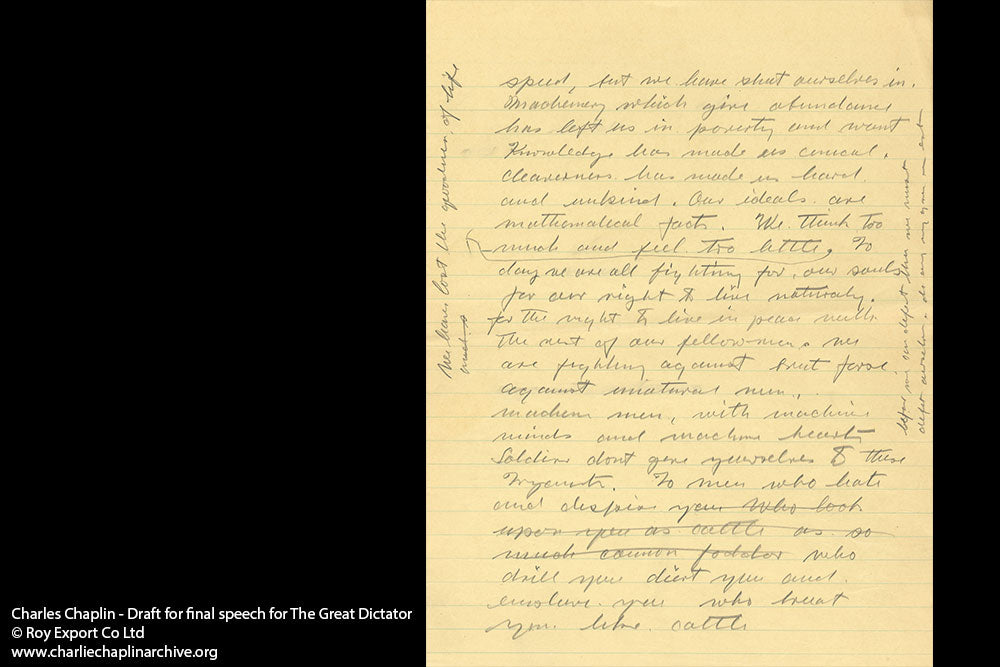 speed, but we have shut ourselves in.
Machenery which give abundance
has left us in poverty and want
Knowledge has made us cinical.
cleverness has made us hard
and unkind. Our ideals are
mathematecal facts. We think too
much and feel too little. To
day we are all fighting for, our souls
for our right to live naturaly.
for the right to live in peace with
the rest of our fellow-men, we
are fighting against brut forse
against unatural men,
machene men, with machine
minds and machine hearts
Soldiers dont give yourselves to these
Tryants. To men who hate
and despise you who look
upon you as cattle as so
much cannon foddor who
drill you diet you and
enslave you who treat
you like cattle
We have lost the goodness of life
before we can defeat them we must
defeat ourselves.
Charles Chaplin - Draft for final speech for The Great Dictator
© Roy Export Co Ltd
www.charliechaplinarchive.org